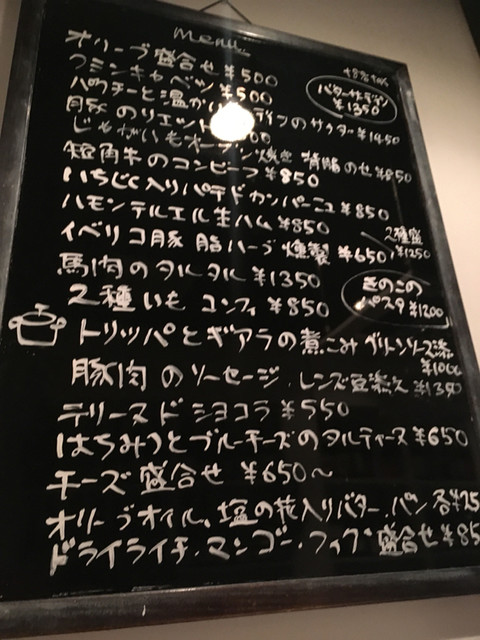 menu
+8% tax
オリーブ盛合せ ¥500
クミンキャベツ ¥500
バターサーディン ¥1350
パクチーと温かい のサラダ ¥1450
豚のリエット
じゃがいもオーブン焼き 背脂のせ ¥850
短角牛のコンビーフ ¥850
いちじく入りパテドカンパーニュ ¥850
ハモンテルエル生ハム ¥850
イベリコ豚 脂ハーブ燻製 ¥650
2種盛 ¥1250
馬肉のタルタル ¥1350
きのこのパスタ ¥1200
2種いも コンフィ ¥850
トリッパとギアラの煮こみ グリーンソース添
豚肉のソーセージ、レンズ豆添え ¥1350
テリーヌドショコラ ¥550
はちみつとブルーチーズのタルティーヌ ¥650
チーズ盛合せ ¥650〜
オリーブオイル、塩の花入りバター、パン 各
ドライライチ・マンゴー・フィグ盛合せ